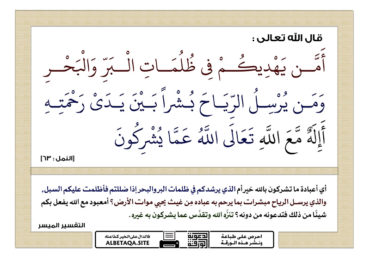 قال الله تعالى :
أَمَّـن يَهْدِيكُـمْ فِى ظُلُمَـاتِ الْـبَرِّ وَالْبَحْـرِ
وَمَـن يُرْسِـلُ الرِّيَـاحَ بُـشْراً بَـيْنَ يَـدَىْ رَحْمَتِـهِ
أَإِلَهٌ مَّعَ اللَّهِ تَعَالَى اللَّهُ عَمَّا يُشْرِكُونَ
[النمل : ٦٣]
أي أعبادة ما تشركون بالله خير أم الذي يرشدكم في ظلمات البر والبحر إذا ضللتم فأظلمت عليكم السبل,
والذي يرسل الرياح مبشرات بما يرحم به عباده مِن غيث يحيي موات الأرض؟ أمعبود مع الله يفعل بكم
شيئًا من ذلك فتدعونه من دونه؟ تنزَّه الله وتقدَّس عما يشركون به غيره.
التفسير الميسر
احرص على طباعة
ونشر هذه الورقة
فالدال على الخير كفاعله
ALBETAQA.SITE